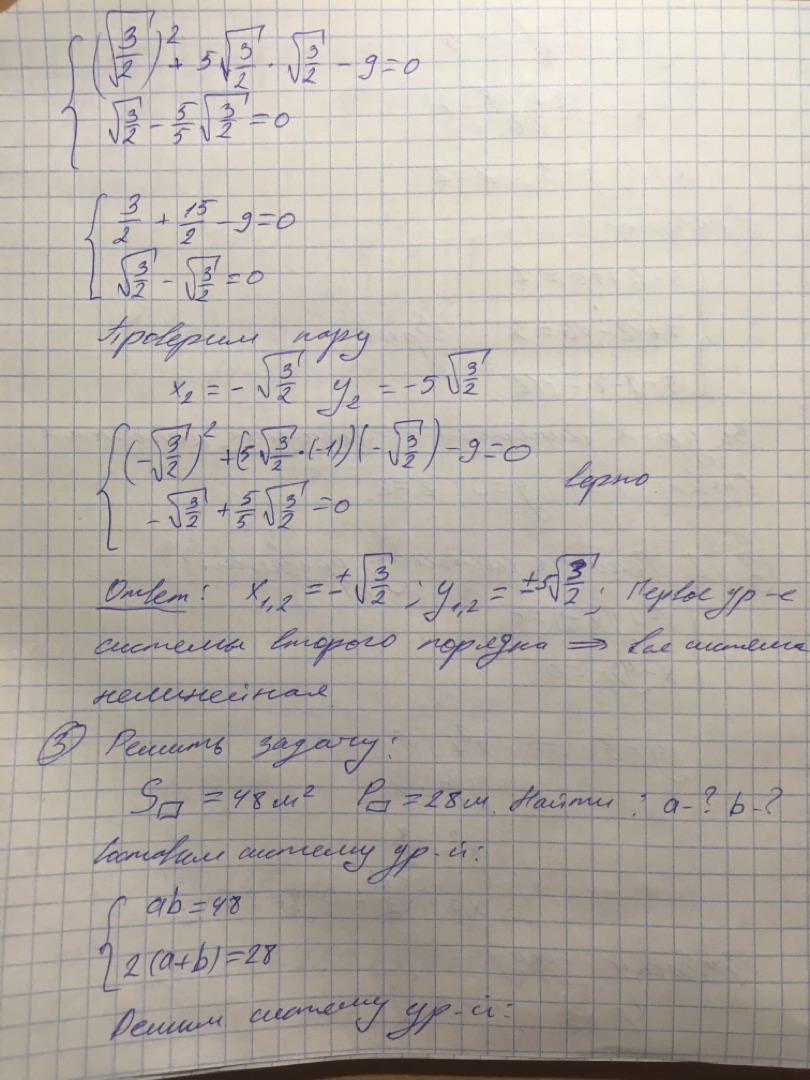 (√(3/2))² + 5√(3/2) · √(3/2) − 9 = 0
√(3/2) − 5/5 √(3/2) = 0
3/2 + 15/2 − 9 = 0
√(3/2) − √(3/2) = 0
Проверим пару
x₂ = −√(3/2) y₂ = −5√(3/2)
(−√(3/2))² + (5√(3/2) · (−1))(−√(3/2)) − 9 = 0
верно
−√(3/2) + 5/5 √(3/2) = 0
Ответ: x₁,₂ = ±√(3/2); y₁,₂ = ±5√(3/2); Первое ур-е
системы второго порядка ⇒ вся система
нелинейная.
③ Решить задачу:
S▱ = 48 м² P▱ = 28 м. Найти: a-? b-?
Составим систему ур-й:
ab = 48
2(a+b) = 28
Решим систему ур-й: